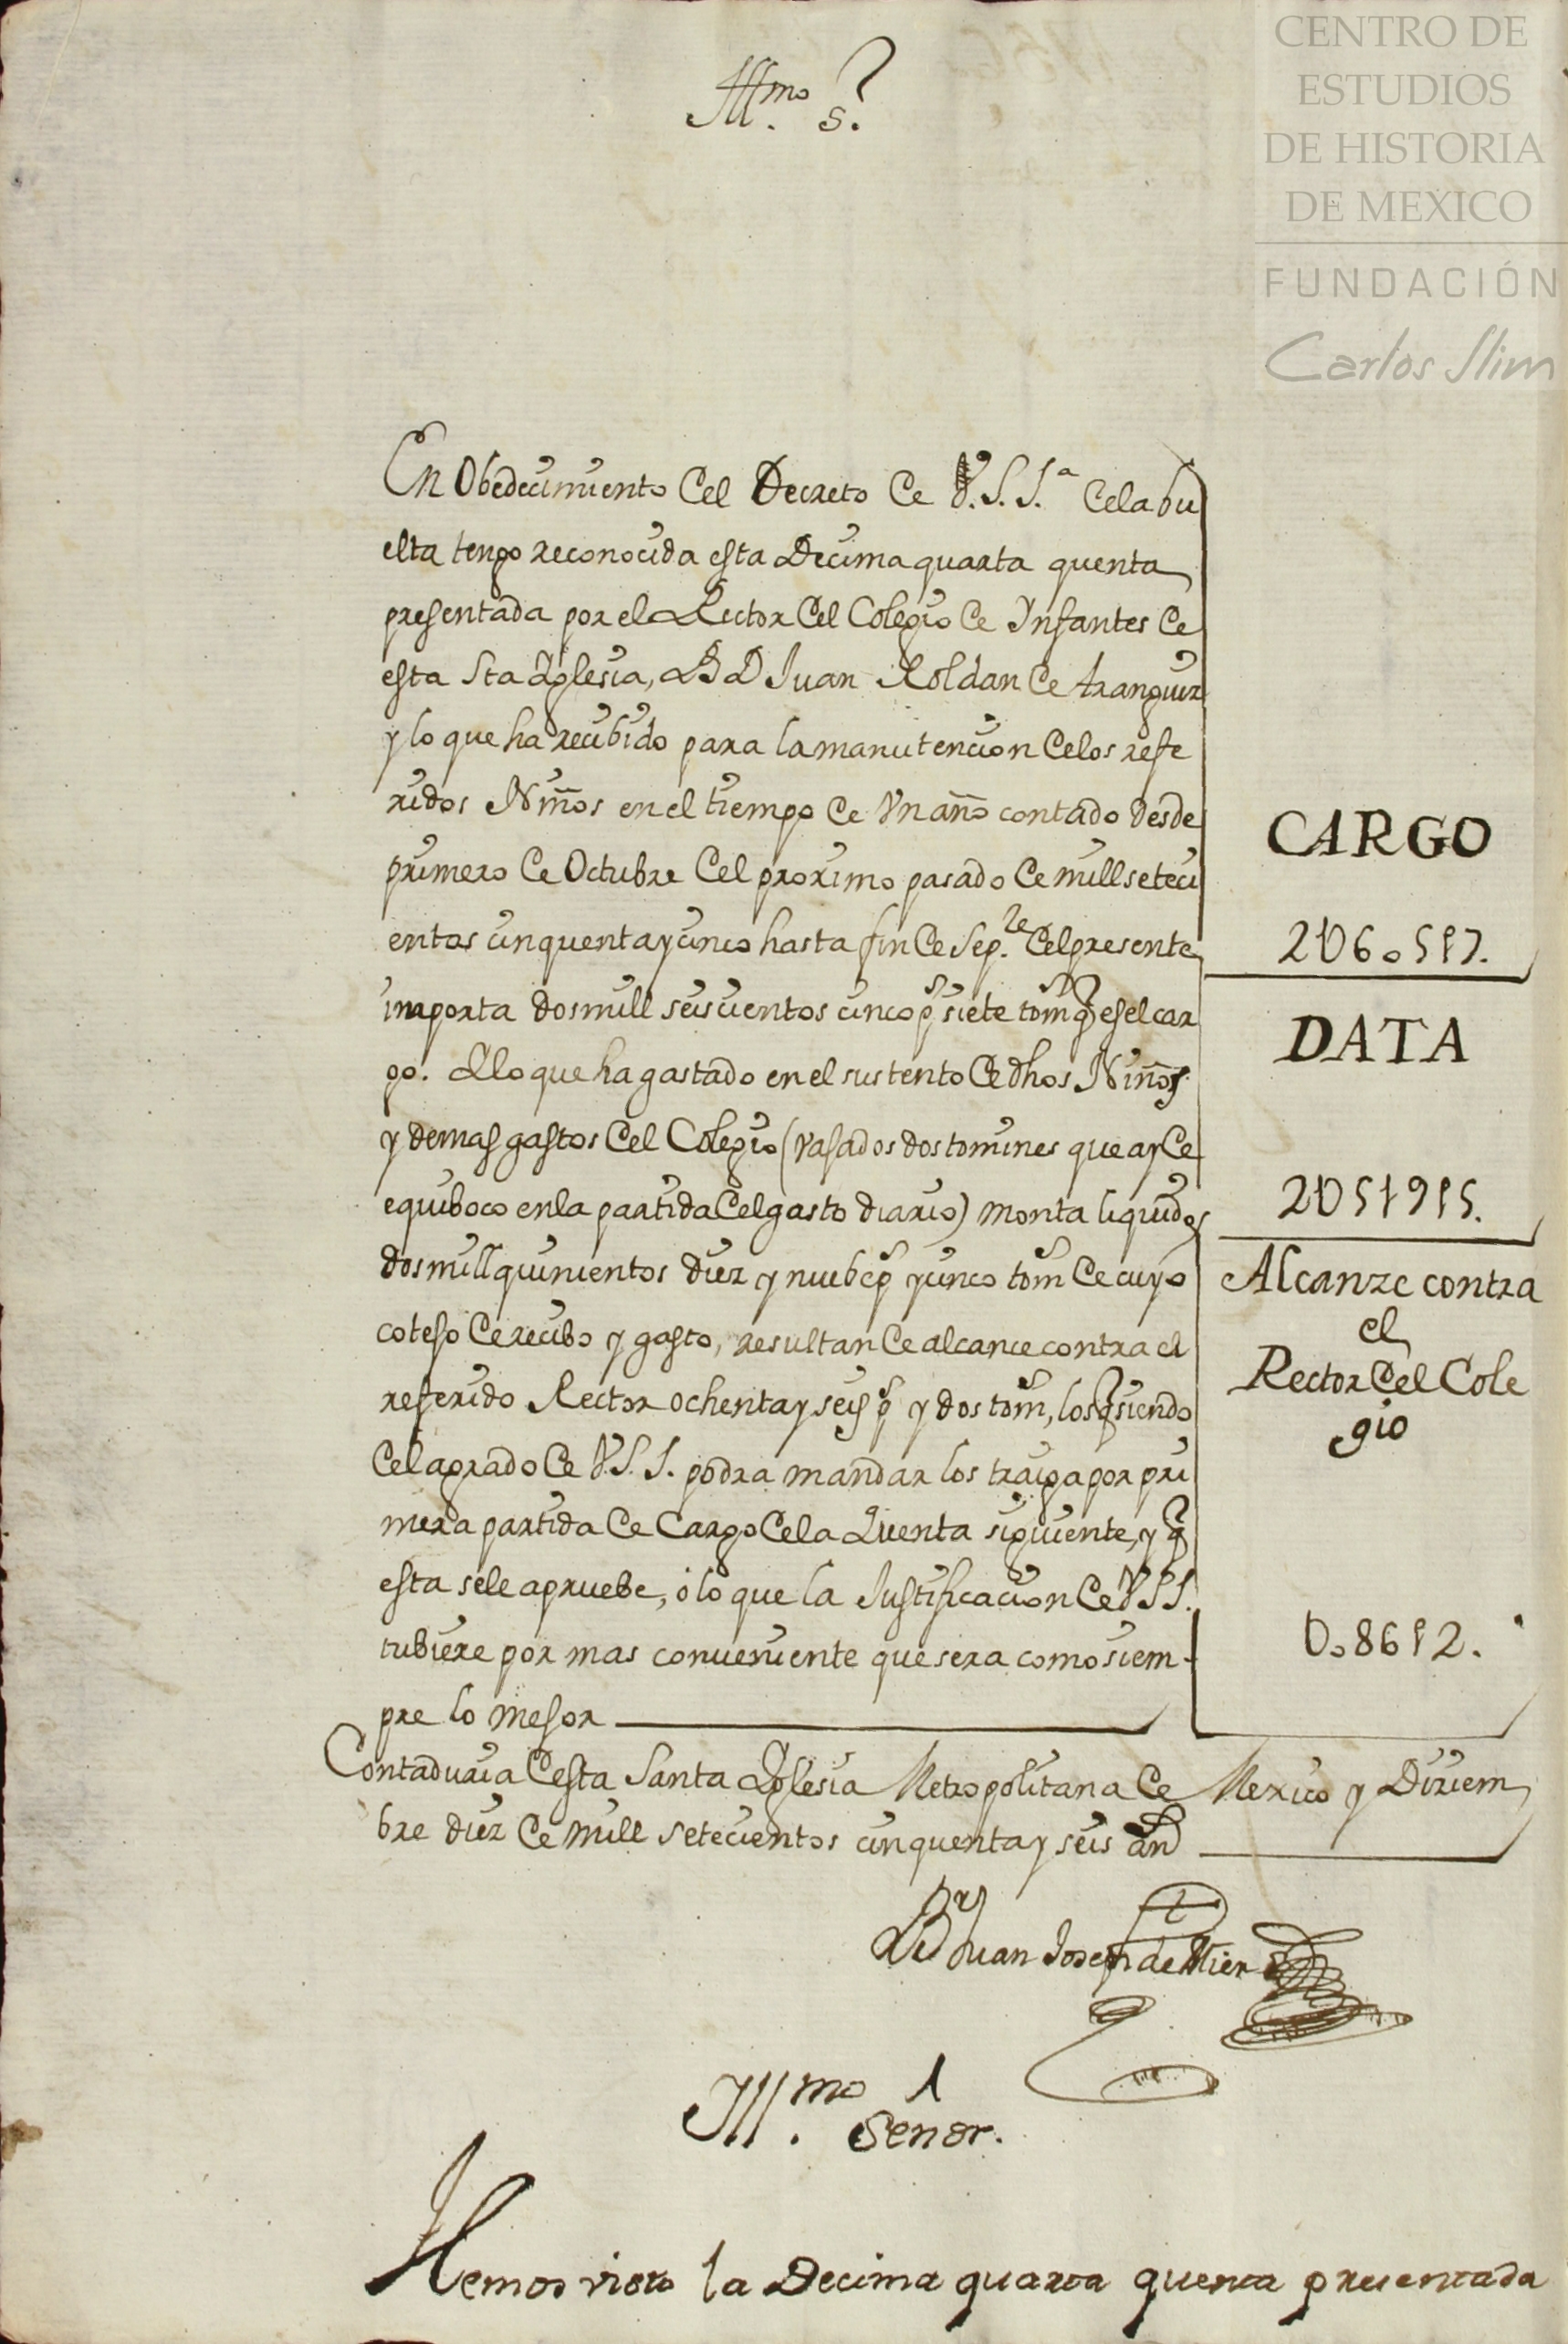 CENTRO DE
ESTUDIOS
DE HISTORIA
DE MEXICO
FUNDACIÓN
Carlos Slim
Illmo. Sr.
En Obedecimiento Del Decreto De V.S.S.a Dela bu
elta tengo reconocida esta Decima quarta quenta
presentada por el Rector Del Colegio De Infantes De
esta Sta Yglesia, Br Dn Juan Roldan De Aranguiz
y lo que ha recibido para la manutencion Delos refe
ridos Niños en el tiempo De Vn año contado desde
primero De Octubre Del proximo pasado De mill seteci
entos cinquenta y cinco hasta fin De Sep.re Del presente
importa dos mill seiscientos cinco ps siete toms q es el car
go. Y lo que ha gastado en el sustento De dhos Niños
y demas gastos Del Colegio (vasados dos tomines que ay De
equiboco en la partida Del gasto diario) monta liquidos
dos mill quinientos diez y nuebe ps y cinco toms De cuyo
cotejo De recibo y gasto, resultan De alcance contra el
referido Rector ochenta y seis ps y dos toms, los q siendo
Del agrado De V.S.S. podra mandar los traiga por pri
mera partida De Cargo Dela Quenta siguiente, y q
esta se le apruebe, o lo que la Justificacion De VSS.
tubiere por mas conveniente que sera como siem-
pre lo mejor
Contaduria Desta Santa Yglesia Metropolitana De Mexico y Diziem
bre diez De mill setecientos cinquenta y seis as
CARGO
2U605p7.
DATA
2U519p5.
Alcanze contra
el
Rector Del Cole
gio
U086p2.
Br Dn Juan Joseph de Mier
Illmo. Señor.
Hemos visto la Decima quarta quenta presentada